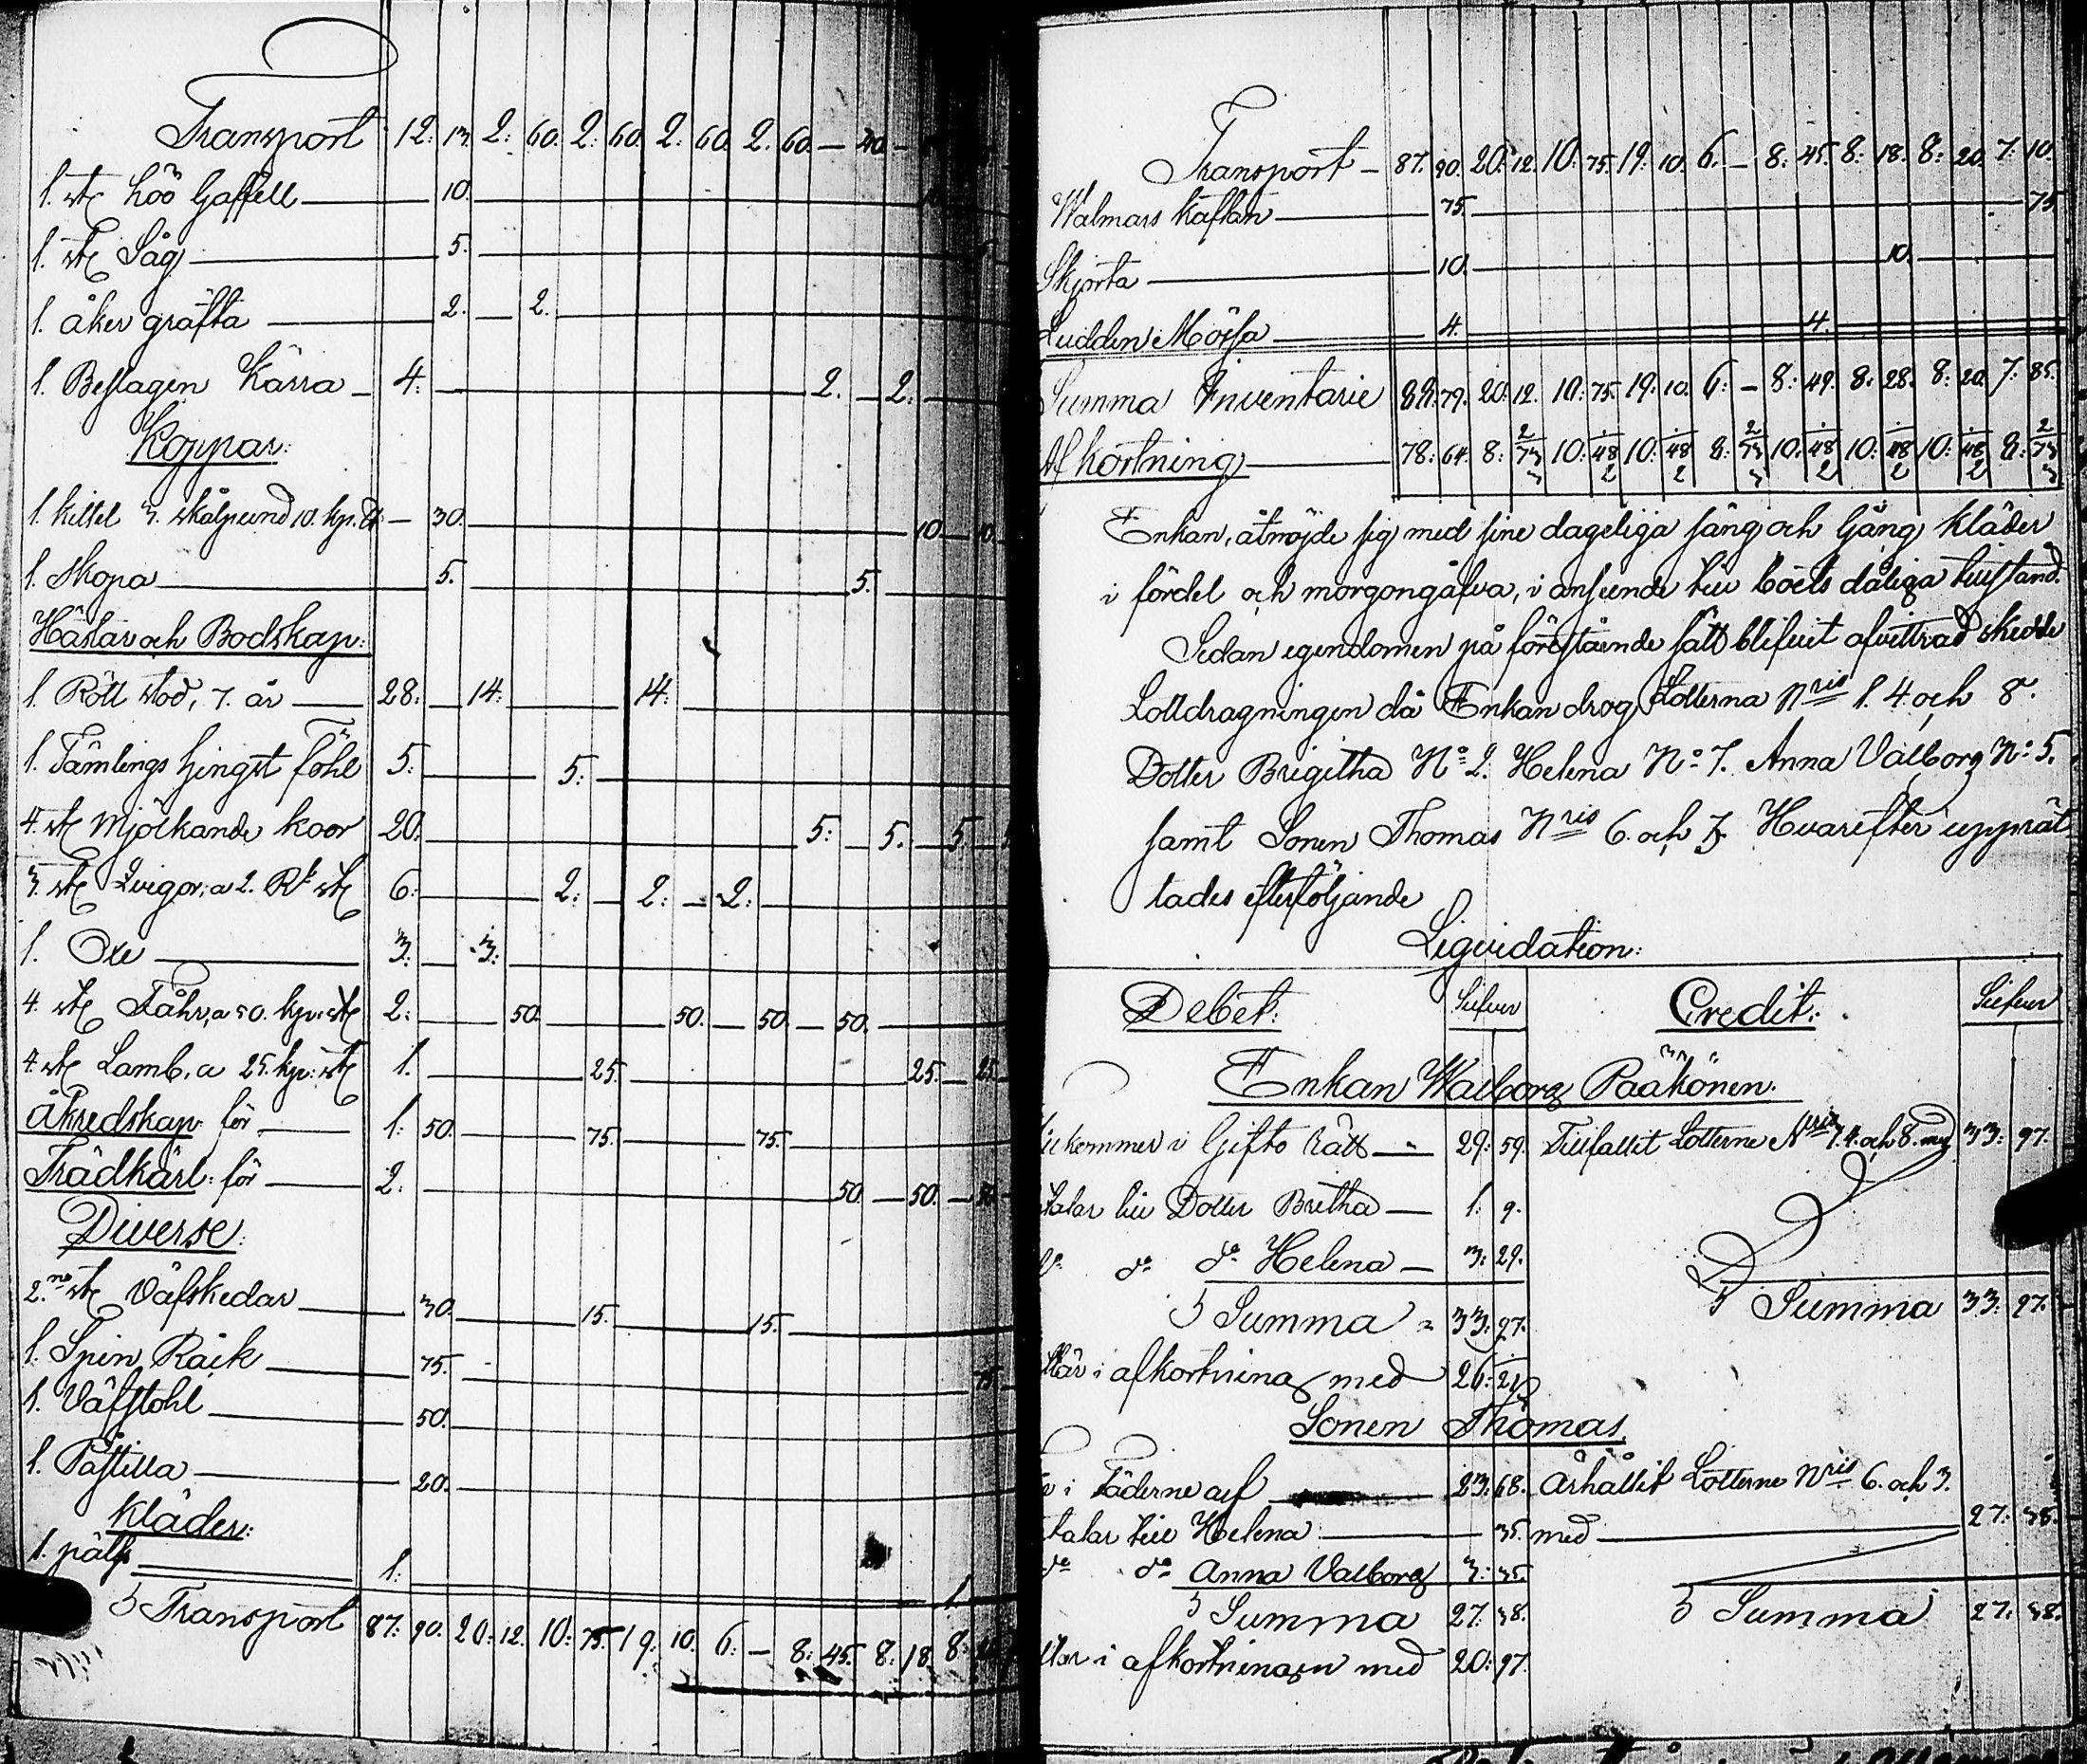 Transport 12: 13. 2: 60. 2: 60. 2: 60. 2. 60. — 40. —
1. st höö Gaffell — 10.
1. st Såg — 5.
1. åker gräfta — 2. — 2.
1. Beslagen Kärra — 4: — 2. — 2.
Koppar:
1. kittel 3. skålpund 10. kp. — 30. — 10. — 10.
1. Skopa — 5. — 5.
Hästar och Bodskap:
1. Rött stod, 7. år — 28: — 14: — 14.
1. Tämlings hingst föhl 5: — 5:
4. st Mjölkande koor 20. — 5: — 5. — 5.
3. st Qvigor, a 2. Rd st 6: — 2: — 2: — 2:
1. Oxe — 3. — 3:
4. st Fåhr, a 50. kp: st 2: — 50. — 50. — 50. — 50.
4. st Lamb, a 25. kp: st 1. — 25. — 25. — 25.
Åkredskap för — 1: 50. — 75. — 75.
Trädkärl: för — 2: — 50. — 50. — 50.
Diverse:
2. st Väfskedar — 30. — 15. — 15.
1. Spin Råck — 75. — 75.
1. Väfstohl — 50.
1. Påstilla — 20.
Kläder:
1. päls — 1: — 1.
Transport 87: 90. 20: 12. 10: 75. 19. 10. 6: — 8: 45. 8: 18. 8:
Transport — 87. 90. 20: 12. 10: 75. 19: 10. 6. — 8: 45. 8: 18. 8: 20. 7: 10.
Walmars kaftan — 75. — 75
Skjorta — 10. — 10.
Ludden Mössa — 4. — 4.
Summa Inventarie 88: 79. 20: 12. 10: 75. 19: 10. 6: — 8: 49. 8: 28. 8: 20. 7: 85.
Afkortning — 78: 64. 8: 10: 48 10: 48 8: 10: 48 10: 48 10: 48 8:
Enkan, åtnöjde sig med sine dageliga säng och Gång kläder
i fördel och morgongåfva, i anseende till boets dåliga tillstånd.
Sedan egendomen på förestående sätt blifvit afvittrad skedde
Lottdragningen då Enkan drog Lotterna Nris 1. 4. och 8.
Dotter Brigitha No 2. Helena No 7. Anna Valborg No 5.
samt Sonen Thomas Nris 6. och 3. Hvarefter upprät
tades efterföljande
Liqvidation:
Debet: Silfver Credit: Silfver
Enkan Walborg Paakönen.
kommer i Gifto rätt — 29: 59. Tillfallit Lotterne Nris 1. 4. och 8. med 33: 97.
talar till Dotter Britha — 1. 9.
do do Helena — 3: 29.
Summa 33: 97. Summa 33: 97.
i afkortning med 26: 21
Sonen Thomas.
i Fäderne arf — 23: 68. Ärhållit Lotterne Nris 6. och 3.
talar till Helena — 35. med — 27: 38.
do do Anna Valborg 3: 35.
Summa 27. 38. Summa 27: 38.
i afkortningen med 20: 97.